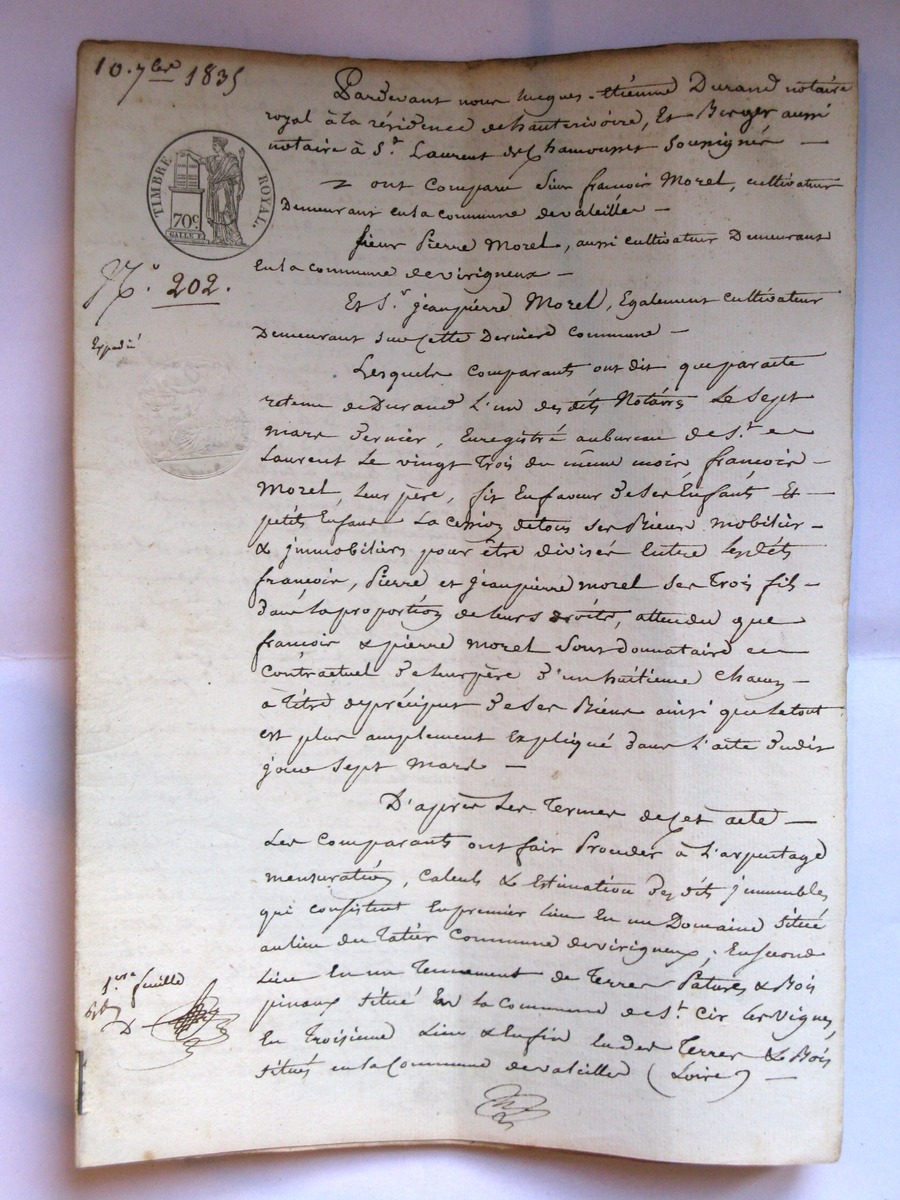 10. 7bre 1835
TIMBRE ROYAL.
70c
GALLE F.
N.o 202.
Expédié
Pardevant nous Jacques-étienne Durand notaire
royal à la résidence de hauterivoire, Et Berger aussi
notaire à St. Laurent de Chamousset Soussignés —
ont Comparu Sieur françois Morel, cultivateur
Demeurant en la commune de valeille —
sieur Pierre Morel, aussi cultivateur Demeurant
En la commune de virigneux —
Et Sr. jeanpierre Morel, Egalement cultivateur
Demeurant sur Cette Derniere Commune —
Lesquels Comparants ont dit que par acte
retenu de Durand L'un des dits Notaires Le Sept
mars dernier, Enregistré au bureau de St.
Laurent Le vingt Trois du même mois françois —
Morel, leur père, fit En faveur De Ses Enfants Et —
petits Enfants La Cession de tous Ses Biens mobiliers —
& jmmobiliers pour être divisés Entre lesdits
françois, Pierre et jeanpierre morel Ses Trois fils —
dans la proportion de leurs droits, attendu que
françois & pierre Morel Sont Donnataires en
Contractuel De leur père D'un huitieme Chacun —
à Titre de préciput De Ses Biens ainsi que le tout
est plus amplement Expliqué Dans L'acte Dudit
jour Sept Mars —
D'après Les Termes de Cet acte —
Les Comparants ont fait Proceder à L'arpentage
mensuration, Calculs & Estimation Des dits jmmeubles
qui Consistent En premier lieu En un Domaine Situé
au lieu du Tatier Commune de virigneux, En Second
Lieu En un Tennement de Terres Patures & Bois
pinaux Situé En la Commune de St. Cir les Vignes,
En Troisieme Lieu & Enfin En des Terres & Bois
Situés en la Commune de valeille (Loire) —
1ere feuille
D